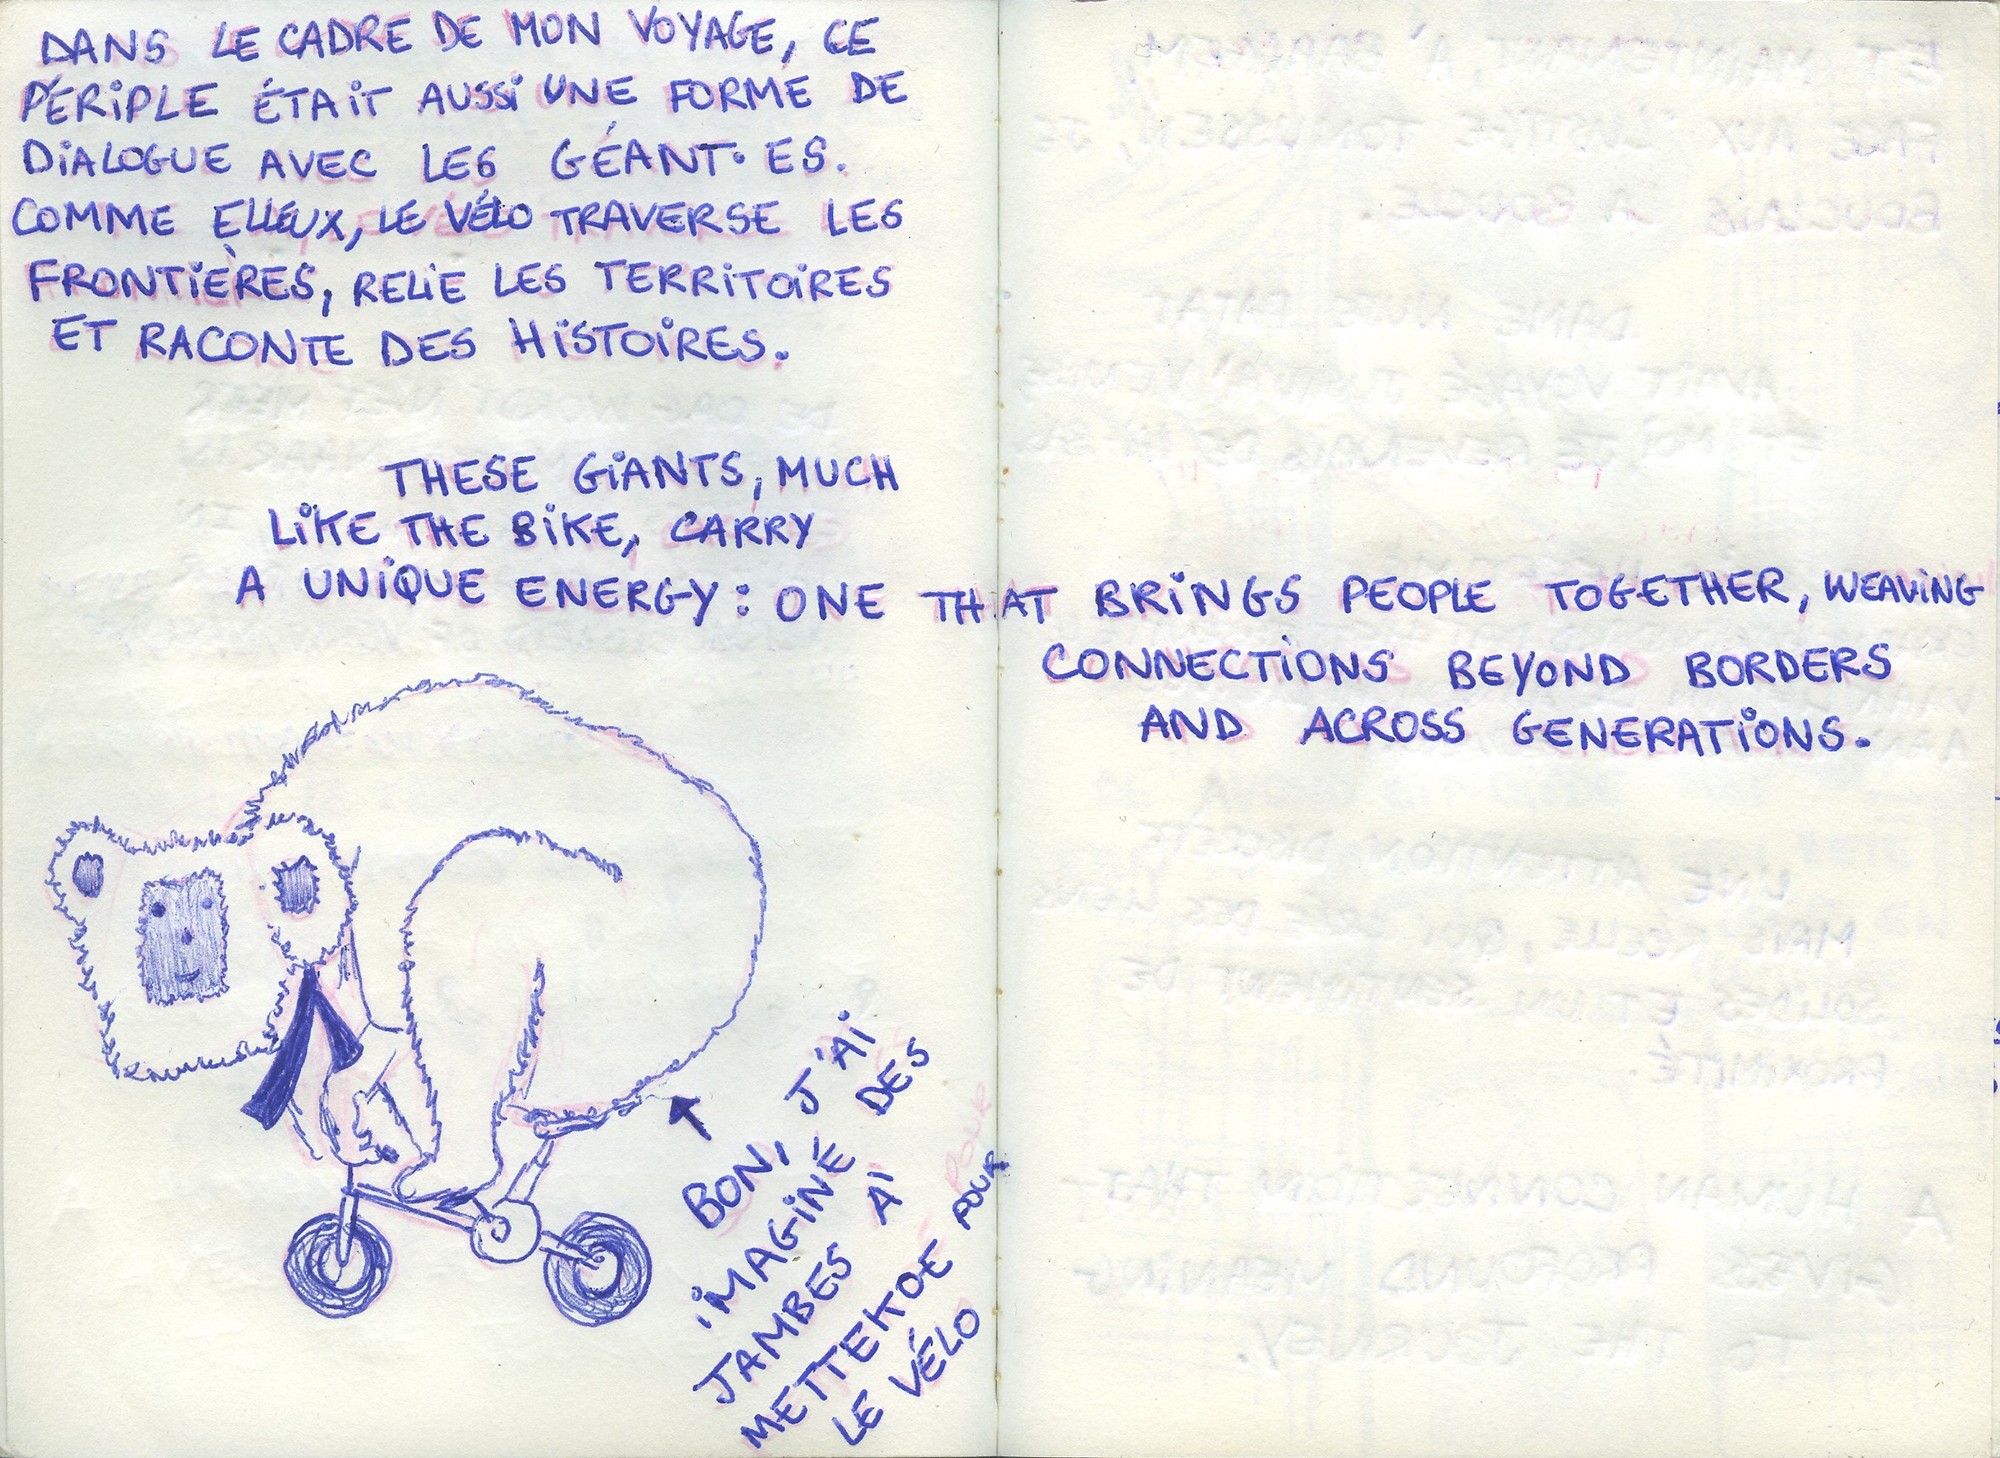 DANS LE CADRE DE MON VOYAGE, CE
PÉRIPLE ÉTAIT AUSSI UNE FORME DE
DIALOGUE AVEC LES GÉANT·ES.
COMME ELLEUX, LE VÉLO TRAVERSE LES
FRONTIÈRES, RELIE LES TERRITOIRES
ET RACONTE DES HISTOIRES.
THESE GIANTS, MUCH
LIKE THE BIKE, CARRY
A UNIQUE ENERGY: ONE THAT BRINGS PEOPLE TOGETHER, WEAVING
CONNECTIONS BEYOND BORDERS
AND ACROSS GENERATIONS.
BON, J'AI
IMAGINÉ DES
JAMBES À
METTEKOE POUR
LE VÉLO